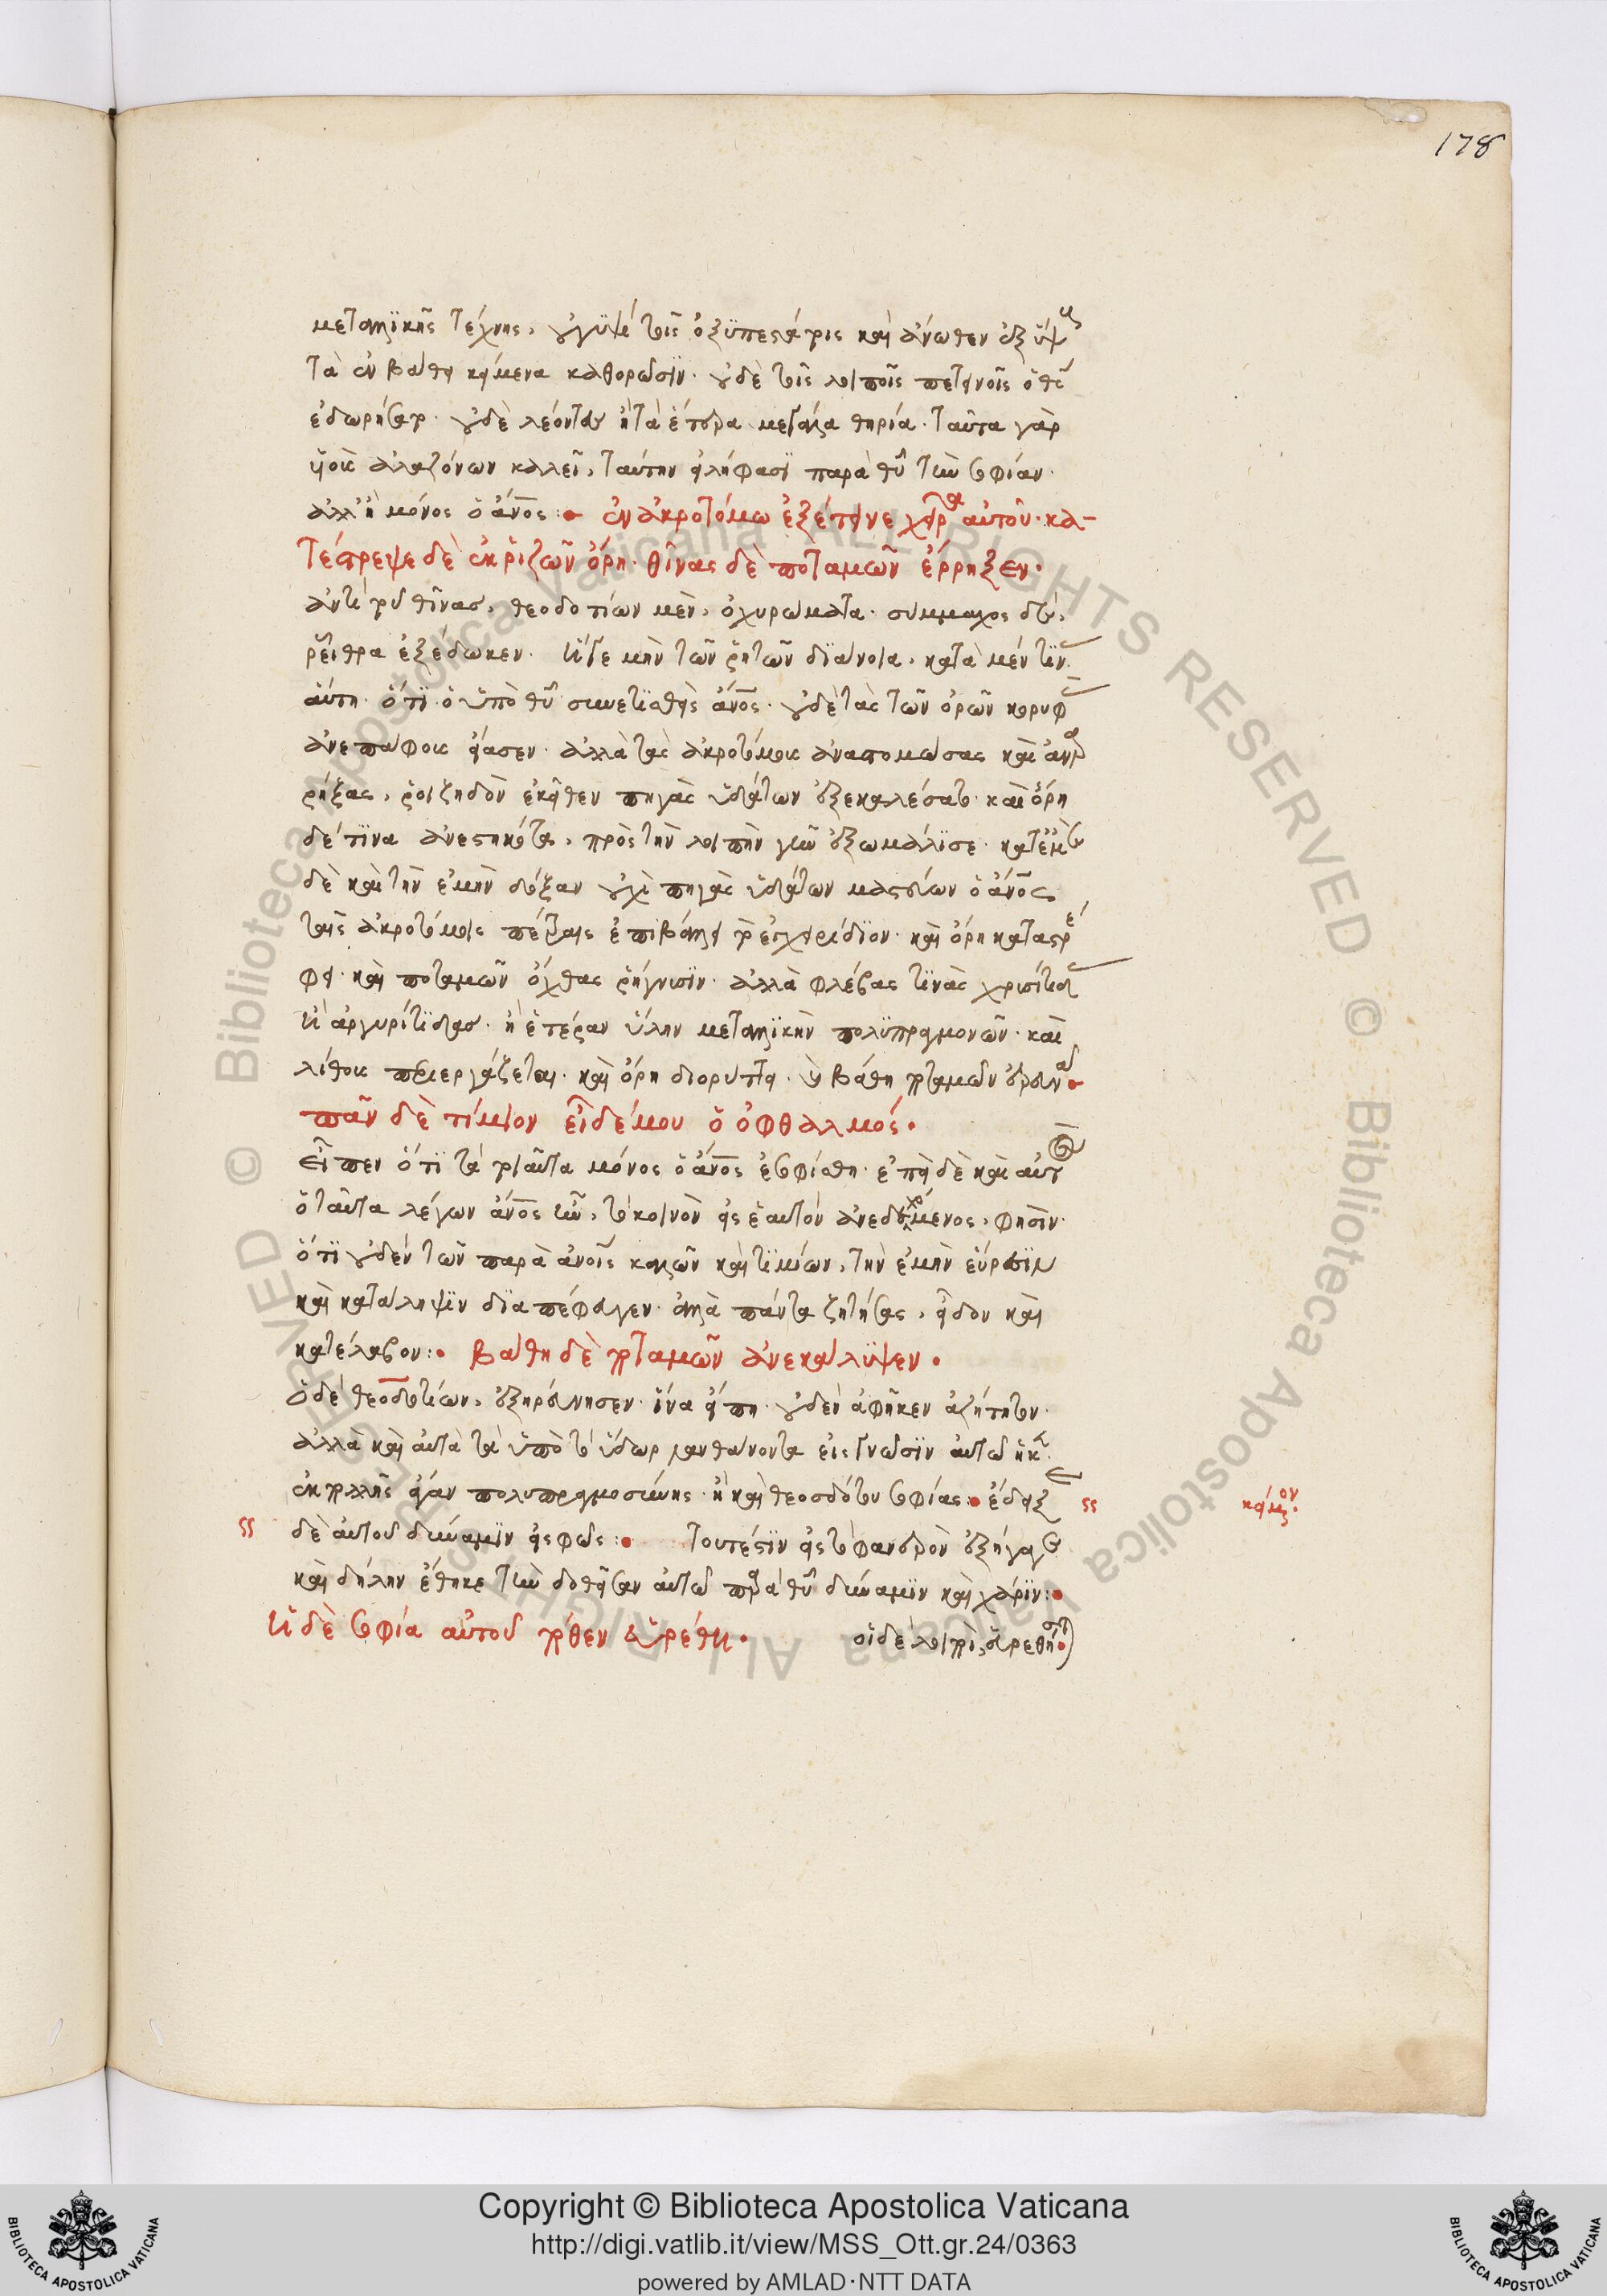 178
μεταλλικῆς τέχνης, οὐ γυψὶ τοῖς ὀξυπετέροις καὶ ἄνωθεν ἐξ ὕψους
τὰ ἐν βάθει κείμενα καθορῶσιν. οὐδὲ τοῖς λοιποῖς πετεινοῖς ὁ θς
ἐδωρήσατο. οὐδὲ λέοντα ἢ τὰ ἕτερα μεγάλα θηρία. ταῦτα γὰρ
υἱοὺς ἀλαζόνων καλεῖ, ταύτην εἰλήφασι παρὰ θῦ τὴν σοφίαν.
ἀλλ' ἢ μόνος ὁ ἄνος: ἐν ἀκροτόμω ἐξέτεινε χεῖρα αὐτοῦ. κα-
τέστρεψε δὲ ἐκ ριζῶν ὄρη. θῖνας δὲ ποταμῶν ἔρρηξεν.
ἀντὶ τοῦ θῖνας, θεοδοτίων μὲν, ὀχυρώματα. σύμμαχος δὲ,
ῥεῖθρα ἐξέδωκεν. ἡ γε μὴν τῶν ῥητῶν διάνοια, κατὰ μέν τιν
αὕτη. ὅτι ὁ ὑπὸ θῦ συνετισθεὶς ἄνος. οὐδὲ τὰς τῶν ὀρῶν κορυφὰς
ἀνεπάφους εἴασεν. ἀλλὰ τὰς ἀκροτόμους ἀναστομώσας καὶ ἀναρ
ρήξας, ῥοιζηδὸν ἐκεῖθεν πηγὰς ὑδάτων ἐξεκαλέσατο. καὶ ὄρη
δέ τινα ἀνεστηκότα, πρὸς τὴν λοιπὴν γῆν ἐξωμάλισε. κατ' ἐμὲ
δὲ καὶ τὴν ἐμὴν δόξαν οὐχὶ πηγὰς ὑδάτων μαστεύων ὁ ἄνος
ταῖς ἀκροτόμοις πέτραις ἐπιβάλλει τὸ ἐγχειρίδιον. καὶ ὄρη καταστρέ
φει. καὶ ποταμῶν ὄχθας ῥήγνυσιν. ἀλλὰ φλέβας τινὰς χρυσίτιδας
ἢ ἀργυρίτιδας. ἢ ἑτέραν ὕλην μεταλλικὴν πολυπραγμονῶν. καὶ
λίθους περιεργάζεται. καὶ ὄρη διορύττει. καὶ βάθη ποταμῶν ἐρευνᾶ
πᾶν δὲ τίμιον εἶδέ μου ὁ ὀφθαλμός.
εἶπεν ὅτι τὰ τοιαῦτα μόνος ὁ ἄνος ἐσοφίσθη. ἐπεὶ δὲ καὶ αὐτὸς
ὁ ταῦτα λέγων ἄνος ἦν, τὸ κοινὸν εἰς ἑαυτὸν ἀναδεξάμενος, φησὶν.
ὅτι οὐδὲν τῶν παρὰ ἀνοις καλῶν καὶ τιμίων, τὴν ἐμὴν εὕρεσιν
καὶ κατάληψιν διαπέφευγεν. ἀλλὰ πάντα ζητήσας, εἶδον καὶ
κατέλαβον: βάθη δὲ ποταμῶν ἀνεκάλυψεν.
ὁ δὲ θεοδοτίων, ἐξηρεύνησεν. ἵνα εἴπη. οὐδὲν ἀφῆκεν ἀζήτητον.
ἀλλὰ καὶ αὐτὰ τὰ ὑπὸ τὸ ὕδωρ λανθάνοντα εἰς γνῶσιν αὐτῶ ἧκεν
ἐκ πολλῆς ἄγαν πολυπραγμοσύνης. ἢ καὶ θεοσδότου σοφίας: ἔδειξε
κείμενον.
δὲ αὐτοῦ δύναμιν εἰς φῶς: τουτέστιν εἰς τὸ φανερὸν ἐξήγαγε
καὶ δήλην ἔθηκε τὴν δοθεῖσαν αὐτῶ παρὰ θῦ δύναμιν καὶ χάριν:
ἡ δὲ σοφία αὐτοῦ πόθεν εὑρέθη. οἱ δὲ λοιποὶ, εὑρεθήσεται
Copyright © Biblioteca Apostolica Vaticana
http://digi.vatlib.it/view/MSS_Ott.gr.24/0363
powered by AMLAD·NTT DATA